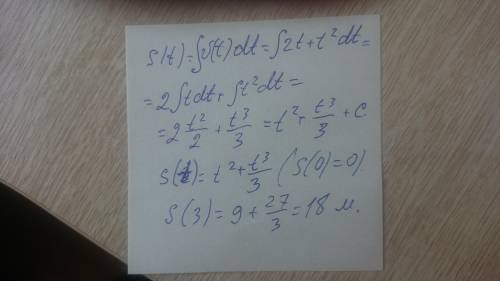 S(t)=∫v(t)dt=∫2t+t²dt=
=2∫tdt+∫t²dt=
=2 t²/2 + t³/3 = t²+ t³/3 + C
S(t)= t²+ t³/3 (S(0)=0)
S(3)=9+ 27/3 =18 м.